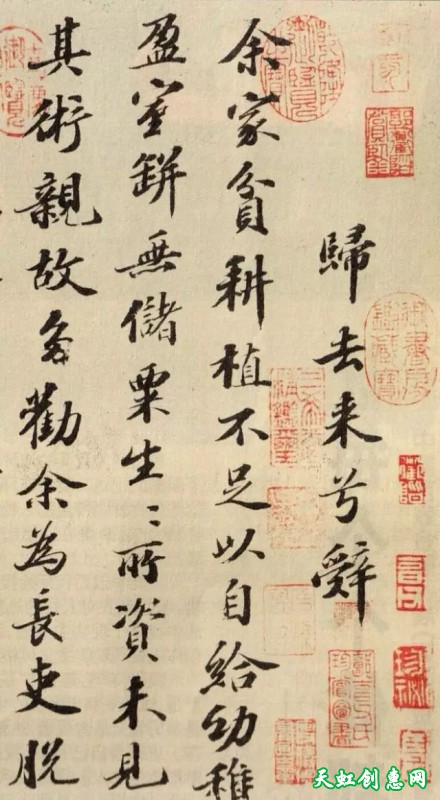 歸去来兮辭
余家貧耕植不足以自給幼稚
盈室缾無儲粟生〻所資未見
其術親故多勸余為長吏脱
天虹创惠网